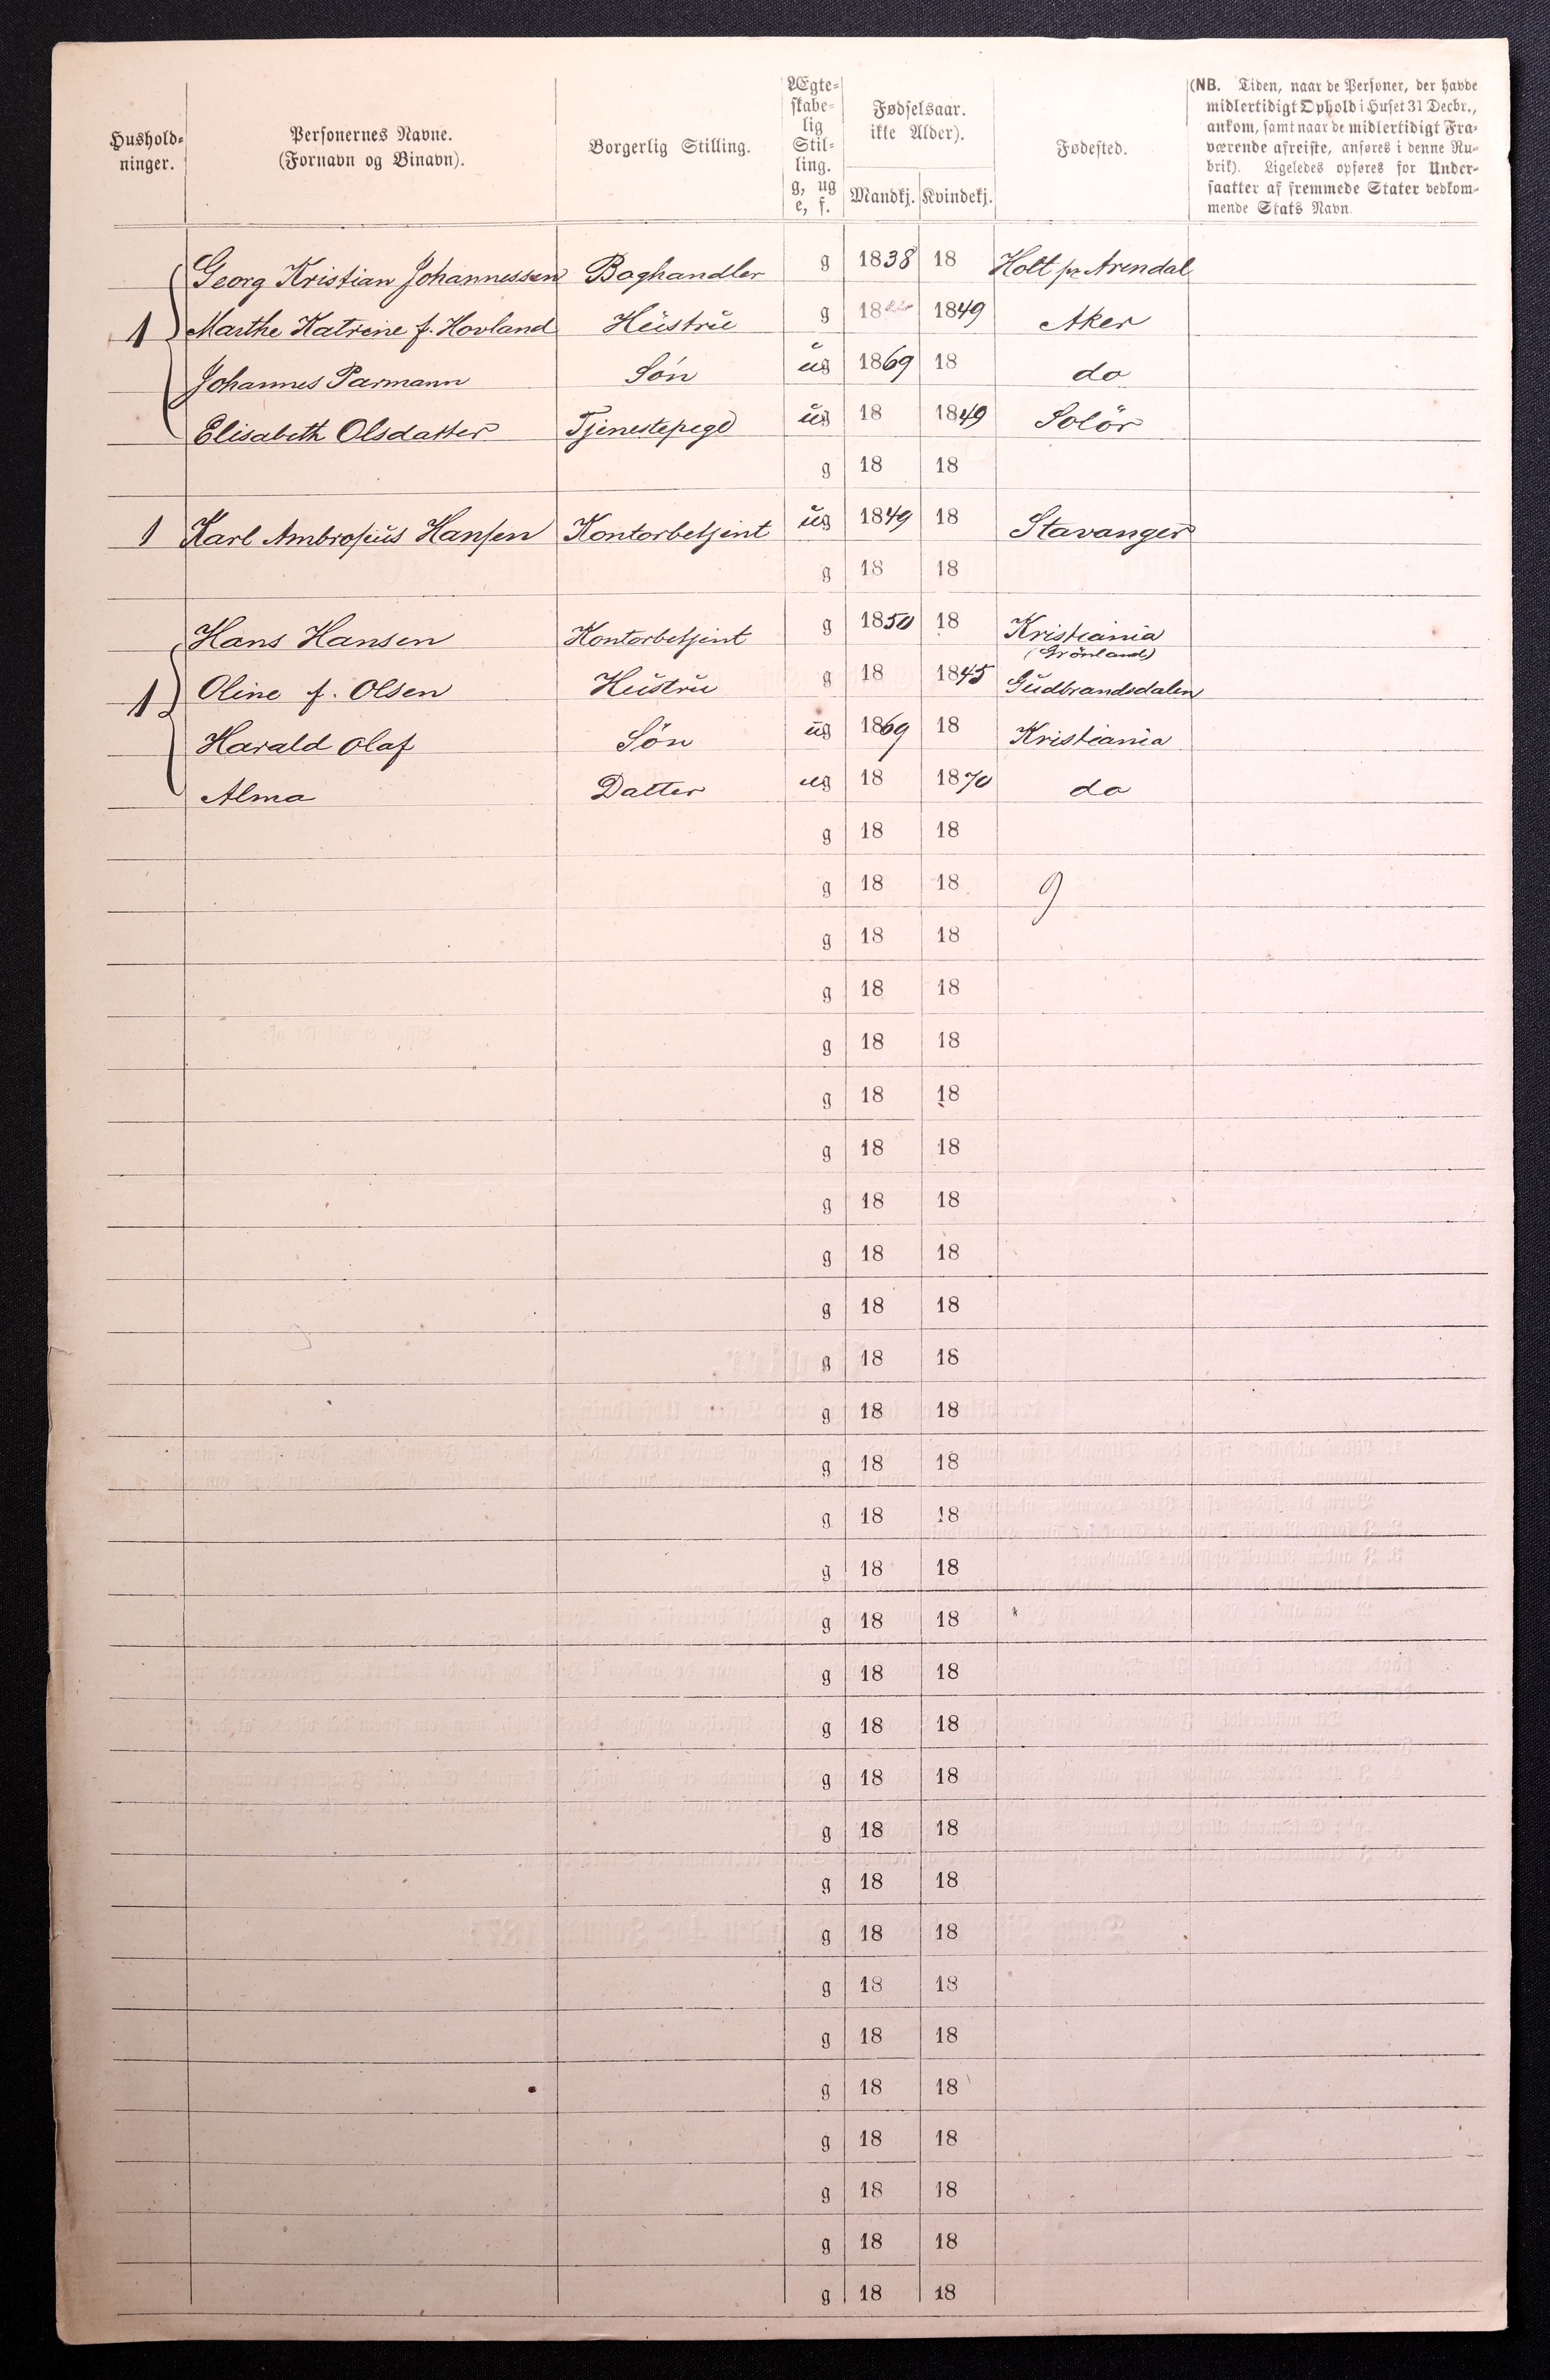 Hushold-
ninger.
Personernes Navne.
(Fornavn og Binavn).
Borgerlig Stilling.
Ægte-
skabe-
lig
Stil-
ling.
g, ug
e, f.
Fødselsaar.
ikke Alder).
Mandkj. Kvindekj.
Fødested.
(NB. Tiden, naar de Personer, der havde
midlertidigt Ophold i Huset 31 Decbr.,
ankom, samt naar de midlertidigt Fra-
værende afreiste, anføres i denne Ru-
brik). Ligeledes opføres for Under-
saatter af fremmede Stater vedkom-
mende Stats Navn.
Georg Kristian Johannessen Boghandler g 1838 18 Holt pr Arendal
1 Marthe Katrine f. Hovland Hustru g 18 1849 Aker
Johannes Parmann Sön ug 1869 18 do
Elisabeth Olsdatter Tjenestepige ug 18 1849 Solör
g 18 18
1 Karl Ambrosius Hansen Kontorbetjent ug 1849 18 Stavanger
g 18 18
Hans Hansen Kontorbetjent g 1850 18 Kristiania
(Grönland)
1 Oline f. Olsen Hustru g 18 1845 Gudbrandsdalen
Harald Olaf Sön ug 1869 18 Kristiania
Alma Datter ug 18 1870 do
g 18 18
g 18 18 9
g 18 18
g 18 18
g 18 18
g 18 18
g 18 18
g 18 18
g 18 18
g 18 18
g 18 18
g 18 18
g 18 18
g 18 18
g 18 18
g 18 18
g 18 18
g 18 18
g 18 18
g 18 18
g 18 18
g 18 18
g 18 18
g 18 18
g 18 18
g 18 18
g 18 18
g 18 18
g 18 18